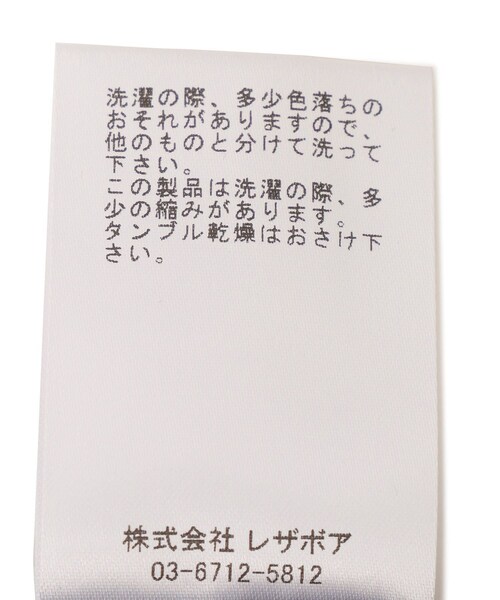 洗濯の際、多少色落ちの
おそれがありますので、
他のものと分けて洗って
下さい。
この製品は洗濯の際、多
少の縮みがあります。
タンブル乾燥はおさけ下
さい。
株式会社 レザボア
03-6712-5812